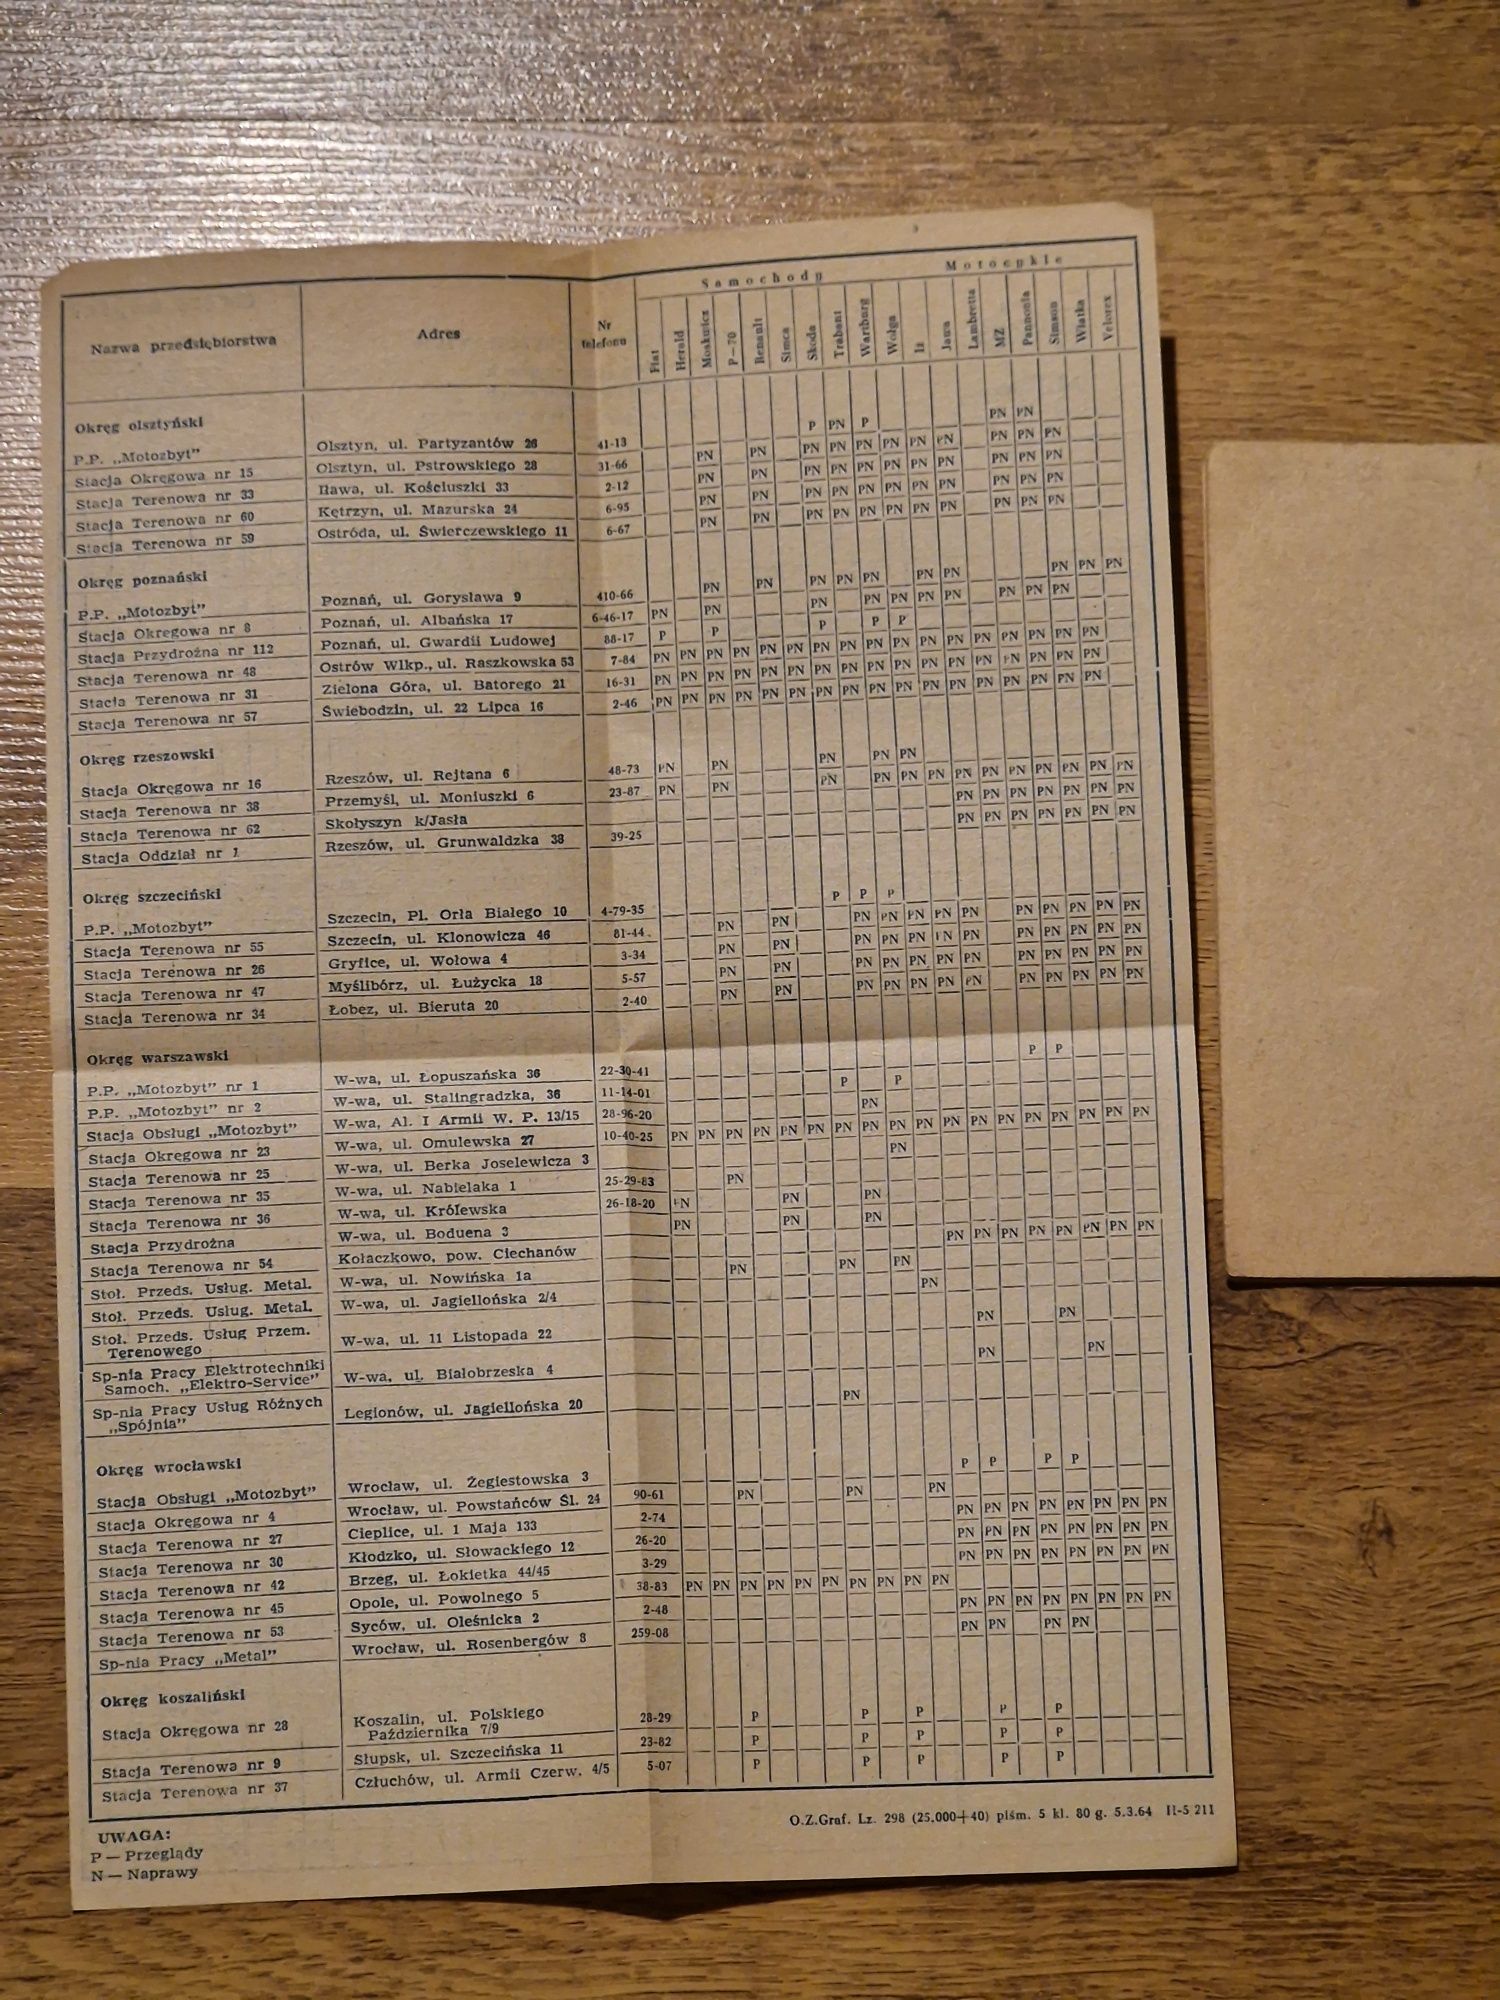 3
Samochody Motocykle
Nazwa przedsiębiorstwa Adres Nr telefonu Fiat Herald Moskwicz P-70 Renault Simca Skoda Trabant Wartburg Wołga Iż Jawa Lambretta MZ Pannonia Simson Wiatka Velorex
Okręg olsztyński
P.P. „Motozbyt” Olsztyn, ul. Partyzantów 26 41-13 P PN P PN PN
Stacja Okręgowa nr 15 Olsztyn, ul. Pstrowskiego 28 31-66 PN PN PN PN PN PN PN PN PN PN PN
Stacja Terenowa nr 33 Iława, ul. Kościuszki 33 2-12 PN PN PN PN PN PN PN PN PN PN PN
Stacja Terenowa nr 60 Kętrzyn, ul. Mazurska 24 6-95 PN PN PN PN PN PN PN PN PN PN PN
Stacja Terenowa nr 59 Ostróda, ul. Świerczewskiego 11 6-67 PN PN PN PN PN PN PN PN PN PN PN
Okręg poznański
P.P. „Motozbyt” Poznań, ul. Gorysława 9 410-66 PN PN PN PN PN PN PN PN PN PN
Stacja Okręgowa nr 8 Poznań, ul. Albańska 17 6-46-17 PN PN PN PN PN PN PN PN PN PN
Stacja Przydrożna nr 112 Poznań, ul. Gwardii Ludowej 88-17 P P P P P
Stacja Terenowa nr 48 Ostrów Wlkp., ul. Raszkowska 53 7-84 PN PN PN PN PN PN PN PN PN PN PN PN PN PN PN PN PN
Stacja Terenowa nr 31 Zielona Góra, ul. Batorego 21 16-31 PN PN PN PN PN PN PN PN PN PN PN PN PN PN PN PN PN
Stacja Terenowa nr 57 Świebodzin, ul. 22 Lipca 16 2-46 PN PN PN PN PN PN PN PN PN PN PN PN PN PN PN PN PN
Okręg rzeszowski
Stacja Okręgowa nr 16 Rzeszów, ul. Rejtana 6 48-73 PN PN PN PN PN
Stacja Terenowa nr 38 Przemyśl, ul. Moniuszki 6 23-87 PN PN PN PN PN PN PN PN PN PN PN PN PN
Stacja Terenowa nr 62 Skołyszyn k/Jasła PN PN PN PN PN PN PN
Stacja Oddział nr 1 Rzeszów, ul. Grunwaldzka 38 39-25 PN PN PN PN PN PN PN
Okręg szczeciński
P.P. „Motozbyt” Szczecin, Pl. Orła Białego 10 4-79-35 P P P
Stacja Terenowa nr 55 Szczecin, ul. Klonowicza 46 81-44 PN PN PN PN PN PN PN PN PN PN PN PN
Stacja Terenowa nr 26 Gryfice, ul. Wołowa 4 3-34 PN PN PN PN PN PN PN PN PN PN PN PN
Stacja Terenowa nr 47 Myślibórz, ul. Łużycka 18 5-57 PN PN PN PN PN PN PN PN PN PN PN PN
Stacja Terenowa nr 34 Łobez, ul. Bieruta 20 2-40 PN PN PN PN PN PN PN PN PN PN PN PN
Okręg warszawski
P.P. „Motozbyt” nr 1 W-wa, ul. Łopuszańska 36 22-30-41 P P
P.P. „Motozbyt” nr 2 W-wa, ul. Stalingradzka, 36 11-14-01 P P
Stacja Obsługi „Motozbyt” W-wa, Al. I Armii W. P. 13/15 28-96-20 PN
Stacja Okręgowa nr 23 W-wa, ul. Omulewska 27 10-40-25 PN PN PN PN PN PN PN PN PN PN PN PN PN PN PN PN PN PN
Stacja Terenowa nr 25 W-wa, ul. Berka Joselewicza 3 PN
Stacja Terenowa nr 35 W-wa, ul. Nabielaka 1 25-29-83 PN
Stacja Terenowa nr 36 W-wa, ul. Królewska 26-18-20 PN PN PN
Stacja Przydrożna W-wa, ul. Boduena 3 PN PN PN
Stacja Terenowa nr 54 Kołaczkowo, pow. Ciechanów PN PN PN PN PN PN PN PN
Stoł. Przeds. Usług. Metal. W-wa, ul. Nowińska 1a PN PN PN
Stoł. Przeds. Usług. Metal. W-wa, ul. Jagiellońska 2/4 PN
Stoł. Przeds. Usług Przem.
Terenowego W-wa, ul. 11 Listopada 22 PN PN
Sp-nia Pracy Elektrotechniki
Samoch. „Elektro-Service” W-wa, ul. Białobrzeska 4 PN PN
Sp-nia Pracy Usług Różnych
„Spójnia” Legionów, ul. Jagiellońska 20 PN
Okręg wrocławski
Stacja Obsługi „Motozbyt” Wrocław, ul. Żegiestowska 3 P P P P
Stacja Okręgowa nr 4 Wrocław, ul. Powstańców Śl. 24 90-61 PN PN PN
Stacja Terenowa nr 27 Cieplice, ul. 1 Maja 133 2-74 PN PN PN PN PN PN PN PN
Stacja Terenowa nr 30 Kłodzko, ul. Słowackiego 12 26-20 PN PN PN PN PN PN PN PN
Stacja Terenowa nr 42 Brzeg, ul. Łokietka 44/45 3-29 PN PN PN PN PN PN PN PN
Stacja Terenowa nr 45 Opole, ul. Powolnego 5 38-83 PN PN PN PN PN PN PN PN PN PN
Stacja Terenowa nr 53 Syców, ul. Oleśnicka 2 2-48 PN PN PN PN PN PN PN PN
Sp-nia Pracy „Metal” Wrocław, ul. Rosenbergów 8 259-08 PN PN PN PN
Okręg koszaliński
Stacja Okręgowa nr 28 Koszalin, ul. Polskiego
Października 7/9 28-29 P P P P P
Stacja Terenowa nr 9 Słupsk, ul. Szczecińska 11 23-82 P P P P P
Stacja Terenowa nr 37 Człuchów, ul. Armii Czerw. 4/5 5-07 P P P P P
UWAGA:
P — Przeglądy
N — Naprawy
O.Z.Graf. Lz. 298 (25.000+40) piśm. 5 kl. 80 g. 5.3.64 II-5 211